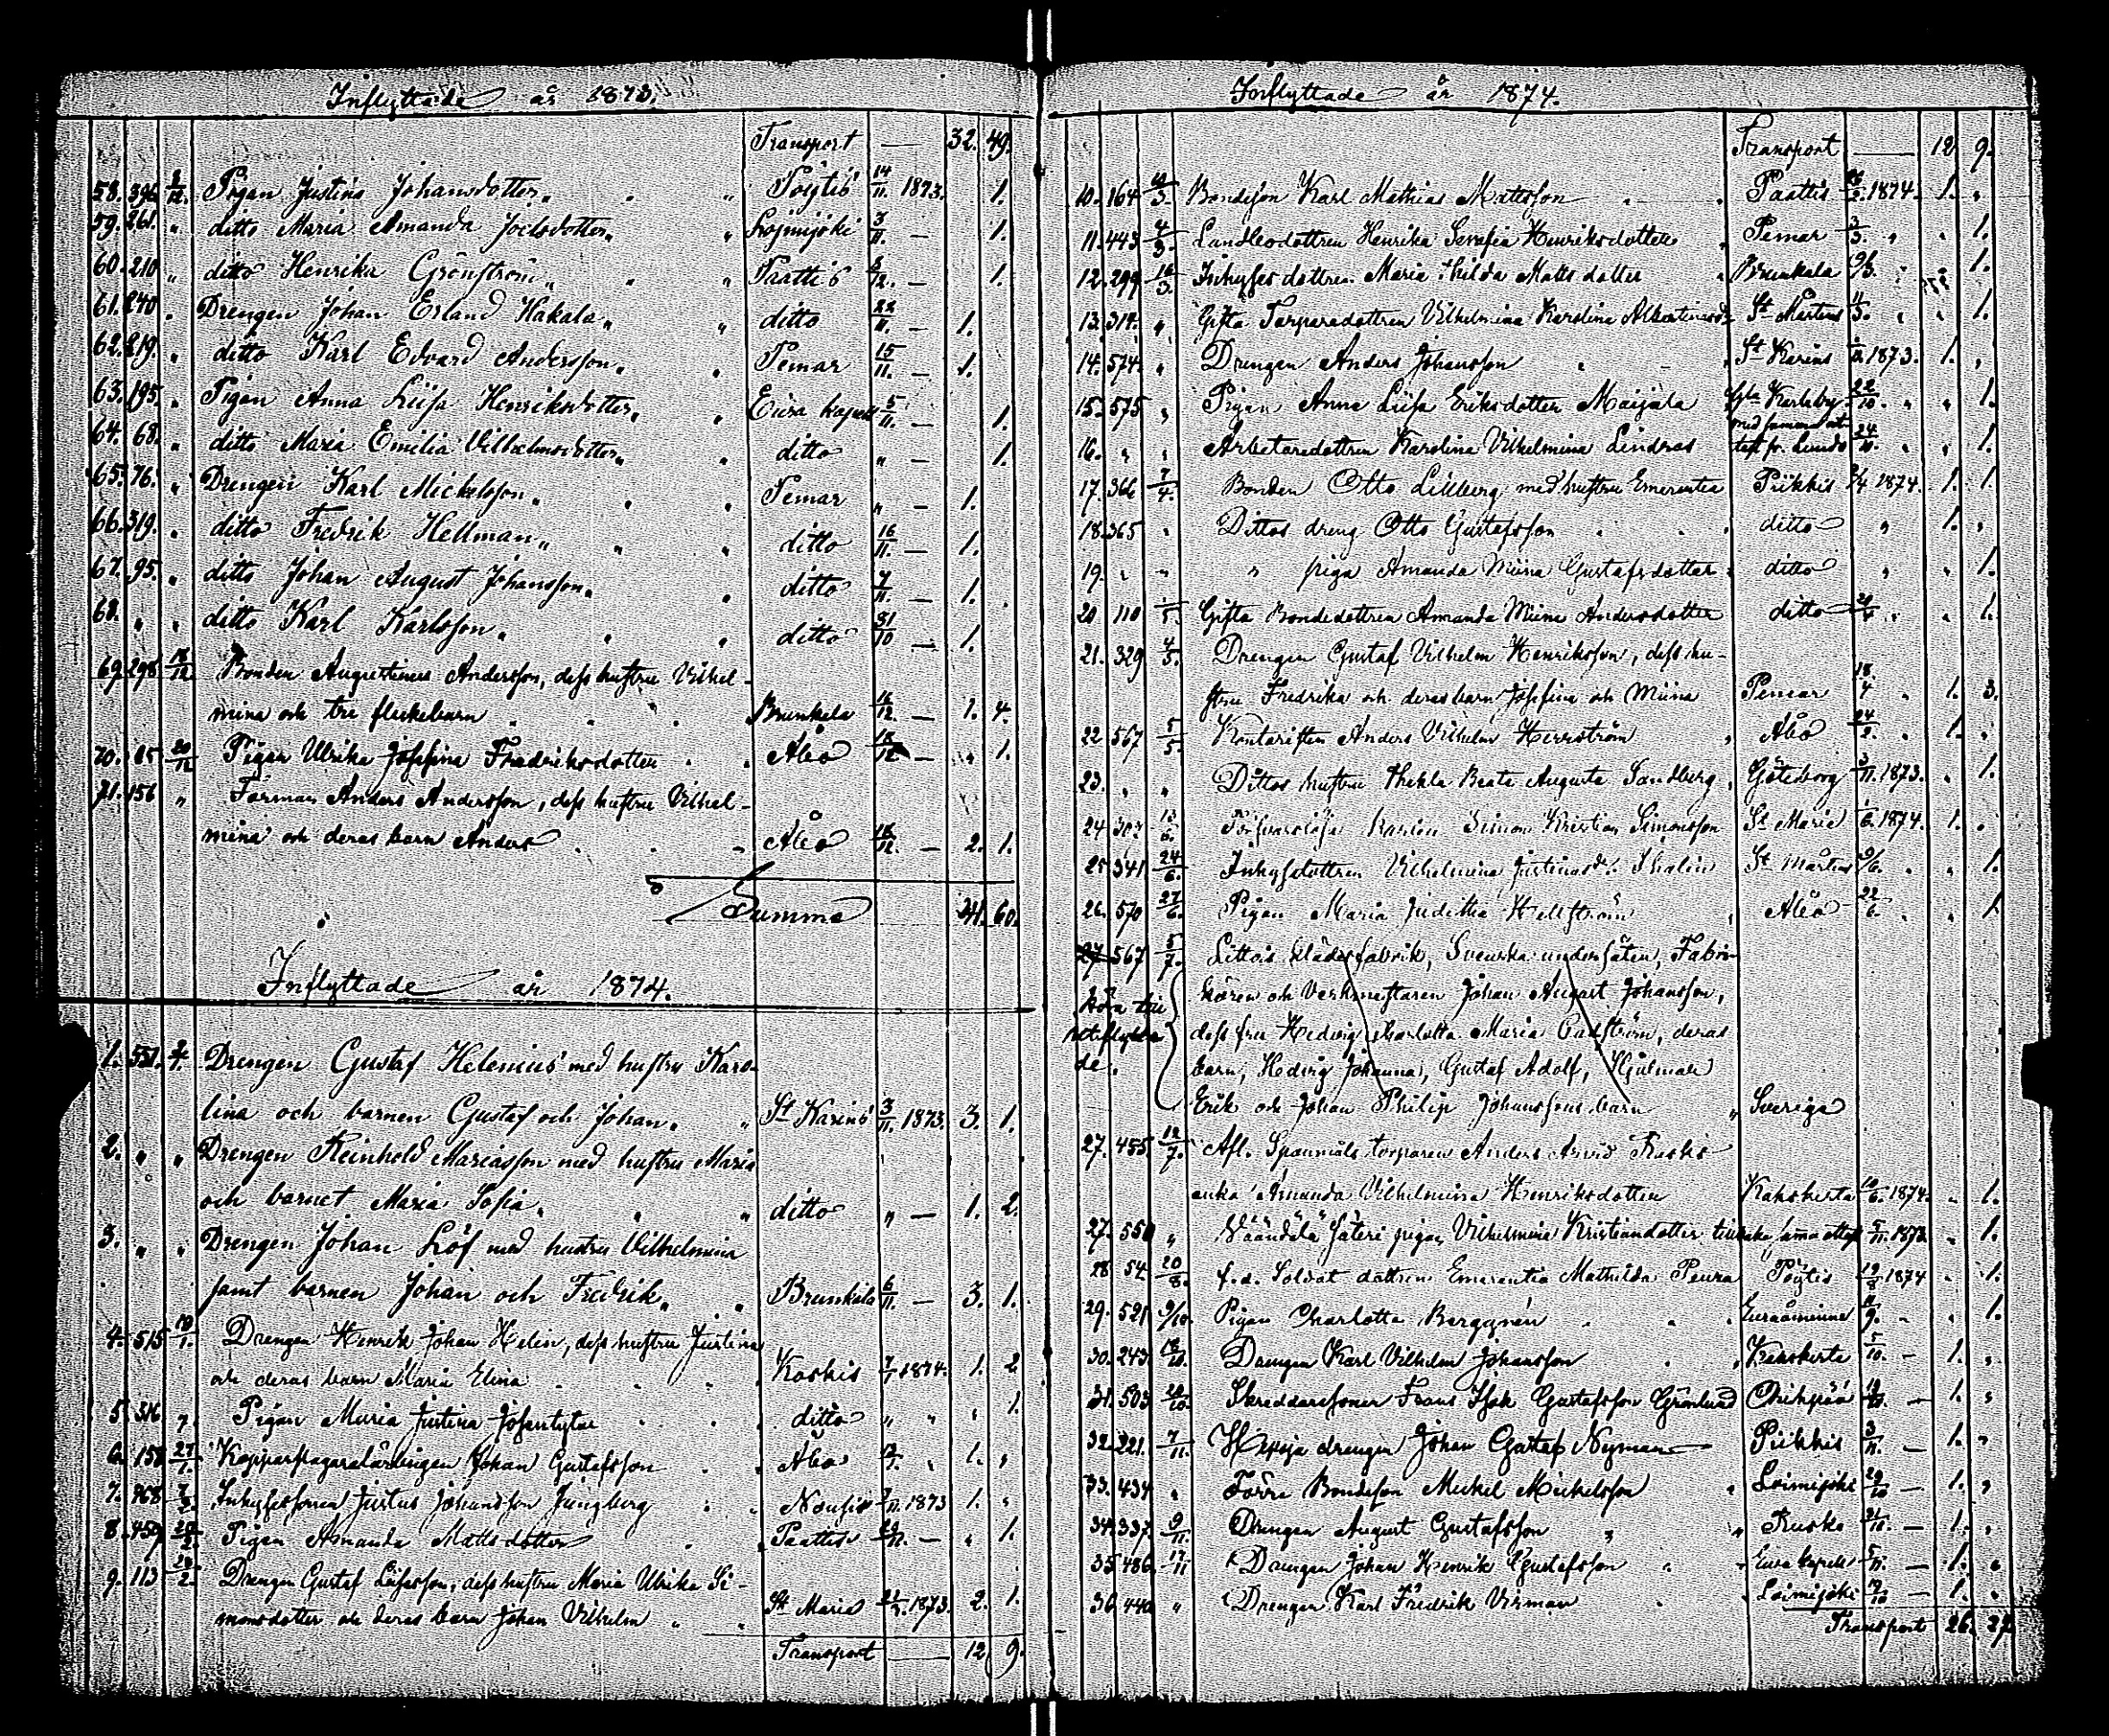 Inflyttade år 1873.
Transport — 32. 49.
58. 396. 8/12. Pigan Justina Johansdotter „ Pöytis 14/11. 1873. 1.
59. 261. „ ditto Maria Amanda Joelsdotter „ Lojmijoki 3/11. — 1.
60. 210 „ ditto Henrika Grönström „ Paattis 8/12. — 1.
61. 240 „ Drengen Johan Erland Hakala „ ditto 22/11. — 1.
62. 219. „ ditto Karl Edvard Andersson „ Pemar 15/11. — 1.
63. 195. „ Pigan Anna Liisa Henriksdotter „ Eura kapell 5/11. — 1.
64. 68. „ ditto Maria Emilia Vilhelmsdotter „ ditto „ — 1.
65. 76. „ Drengen Karl Mickelsson „ Pemar „ — 1.
66. 319. „ ditto Fredrik Hellman „ ditto 16/11. — 1.
67. 95. „ ditto Johan August Johansson „ ditto 7/11. — 1.
68. „ „ ditto Karl Karlsson „ ditto 31/10 — 1.
69. 298 18/12 Bonden Augustinus Andersson, dess hustru Vilhel-
mina och tre flickebarn Brunkala 16/12. — 1. 4.
70. 85 20/12 Pigan Ulrika Josefina Fredriksdotter Åbo 18/12 — „ 1.
71. 156 „ Förman Anders Andersson, dess hustru Vilhel-
mina och deras barn Anders Åbo 18/12. — 2. 1.
Summa 41. 60.
Inflyttade år 1874.
1. 551. 2/1. Drengen Gustaf Helenius med hustru Karo-
lina och barnen Gustaf och Johan „ St Karins 3/11. 1873. 3. 1.
2. „ „ Drengen Reinhold Mariasson med hustru Maria
och barnet Maria Sofia „ ditto „ — 1. 2.
3. „ „ Drengen Johan Löf med hustru Vilhelmina
samt barnen Johan och Fredrik „ Brunkala 6/11. — 3. 1.
4. 515 10/1. Drengen Henrik Johan Helin, dess hustru Justina
och deras barn Maria Elina Koskis 7/1 1874. 1. 2
5. 316 „ Pigan Maria Justina Josefintytär ditto „ „ „ 1.
6. 158 27/1. Kopparslagarelärlingen Johan Gustafsson Åbo 1. „
7. 468 7/2. Inhysessonen Justus Johansson Ljungberg Nousis 1873 1. „
8. 459 Pigan Amanda Mattsdotter Paattis — „ 1.
9. 113 Drengen Gustaf Liisasson, dess hustru Maria Ulrika Si-
monsdotter och deras barn Johan Vilhelm „ St Marie 1873. 2. 1.
Transport — 12 9.
Inflyttade år 1874.
Transport — 12 9.
10. 164 Bondeson Karl Mathias Mattsson Paattis 1874. 1. „
11. 443 4/3. Landbodottren Henrika Serafia Henriksdotter Pemar 3/3. „ „ 1.
12. 299 16/3. Inhysesdottren Maria Hilda Mattsdotter Brunkala „ 1.
13. 314. „ Gifta Torparedottren Vilhelmina Karolina Albertinasdr St Mårtens „ „ 1.
14. 574. „ Drengen Anders Johansson St Karins 1873. 1. „
15. 575 „ Pigan Anna Liisa Eriksdotter Maijala Gla Karleby 22/10. „ „ 1.
16. „ „ Arbetaredottren Karolina Vilhelmina Lindroos med samma at-
test fr. Lundo 24/10. „ „ 1.
17. 366 7/4. Bonden Otto Lillberg med hustru Emerentia Piikkis 1874. 1. 1.
18. 365 „ Dittos dreng Otto Gustafsson ditto „ 1. „
19. „ „ „ piga Amanda Miina Gustafsdotter ditto „ „ 1.
20 110 Gifta Bondedottren Amanda Miina Andersdotter ditto „ „ 1.
21. 329 4/5. Drengen Gustaf Vilhelm Henriksson, dess hu-
stru Fredrika och deras barn Josefina och Miina Pemar 18/4 „ 1. 3.
22 567 5/5. Kontoristen Anders Vilhelm Herrström Åbo „ 1. „
23. „ „ Dittos hustru Thekla Beata Augusta Sandberg Göteborg 3/11. 1873. „ 1.
24 Simon Kristian Simonsson St Marie 1874. 1. „
25 341 24/6. Inhysdottren Vilhelmina Justinasdr Thalin St Mårtens 9/6. „ „ 1.
26. 570 27/6. Pigan Maria Juditha Hellström Åbo 22/6. „ „ 1.
27 567 5/7. Littois klädesfabrik, Svenska undersåten, Fabri-
kören och Verkmästaren Johan August Johansson,
dess fru Hedvig Charlotta Maria, deras
barn, Hedvig Johanna, Gustaf Adolf, Hjalmar
Erik och Johan Philip Johanssons barn „ Sverige
27. 455 12/7. Afl. Spannmåls torparen Anders Arvid Ruskis
enka Amanda Vilhelmina Henriksdotter Kakskerta 1874. „ 1.
27. 550 „ Väändälä Säteri pigan Vilhelmina Kristiansdotter 1873. „ 1.
28 54. 20/8. f.d. Soldat dottren Emerentia Mathilda Peura Pöytis 19/8 1874 „ 1.
29. 521 9/10. Pigan Charlotta Berggrén Euraåminne „ „ 1.
30. 243. Drengen Karl Vilhelm Johansson Kakskerta 5/10. — 1. „
31. 503 Skreddaresonen Frans Isak Gustafsson Grönlund Oripää — 1. „
32. 221. 7/11. drengen Johan Gustaf Nyman Piikkis 3/11. — 1. „
33. 434 „ Förre Bondeson Mickel Mickelsson Loimijoki 29/10 — 1. „
34. 337 9/11. Drengen August Gustafsson „ Rusko — 1. „
35 486 17/11 Drengen Johan Henrik Gustafsson „ Eura kapell — 1. „
36 440 „ Drengen Karl Fredrik Virman Loimijoki — 1. „
Transport 26. 27.
Höra till
utflytta
de.